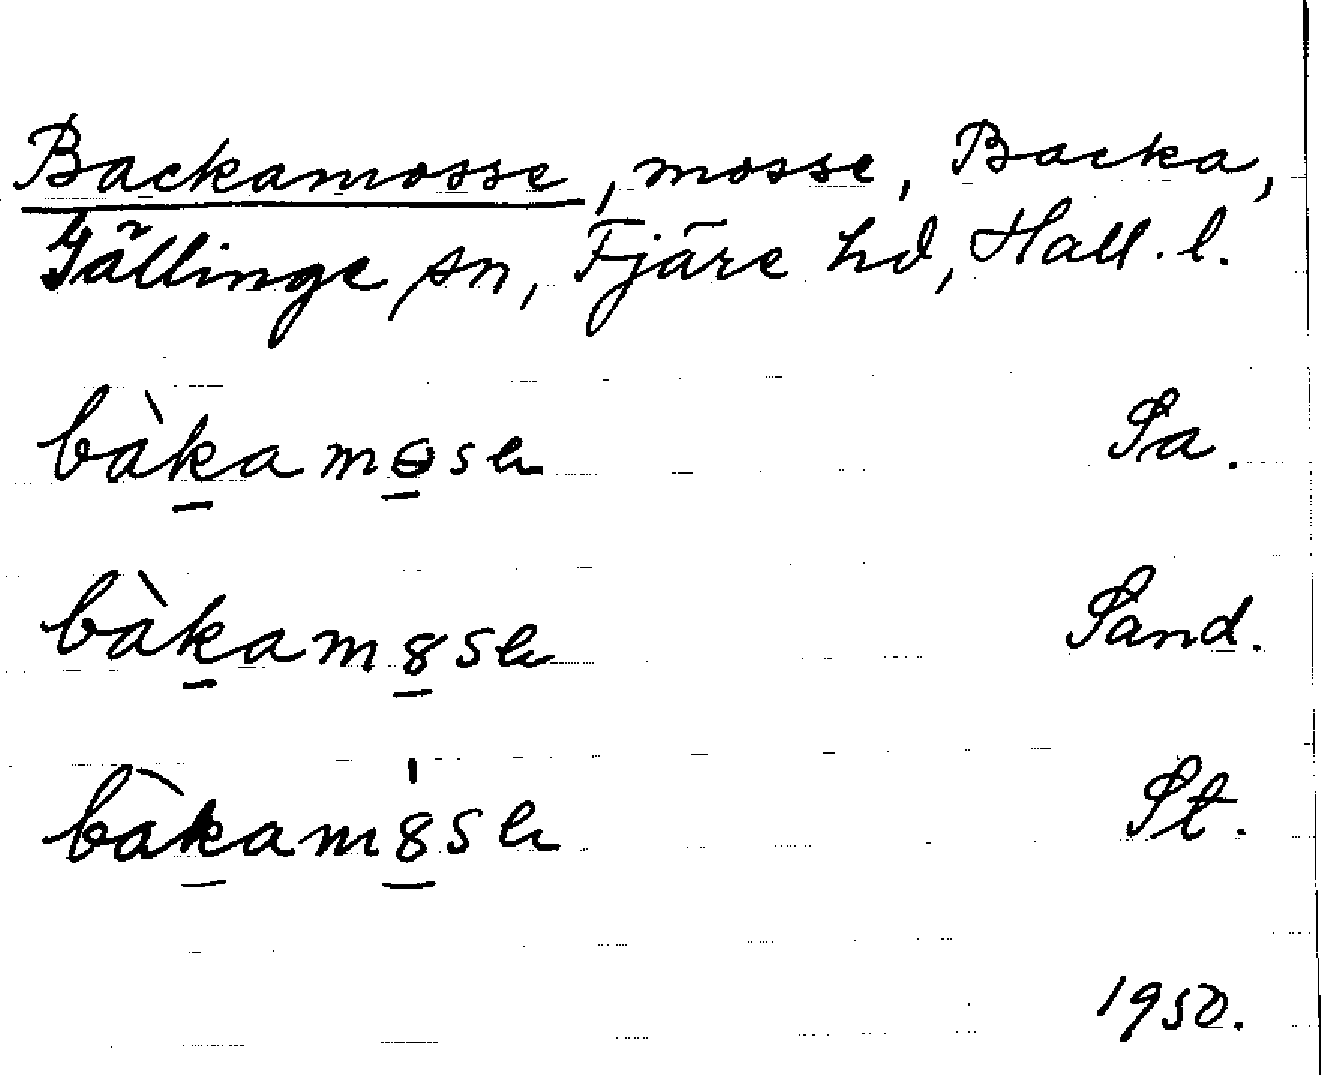 Backamosse, mosse, Backa,
Gällinge sn, Fjäre hd, Hall. l.
bàkamɵsə Sa.
bàkam8sə Sand.
bàkam8sə St.
1950.